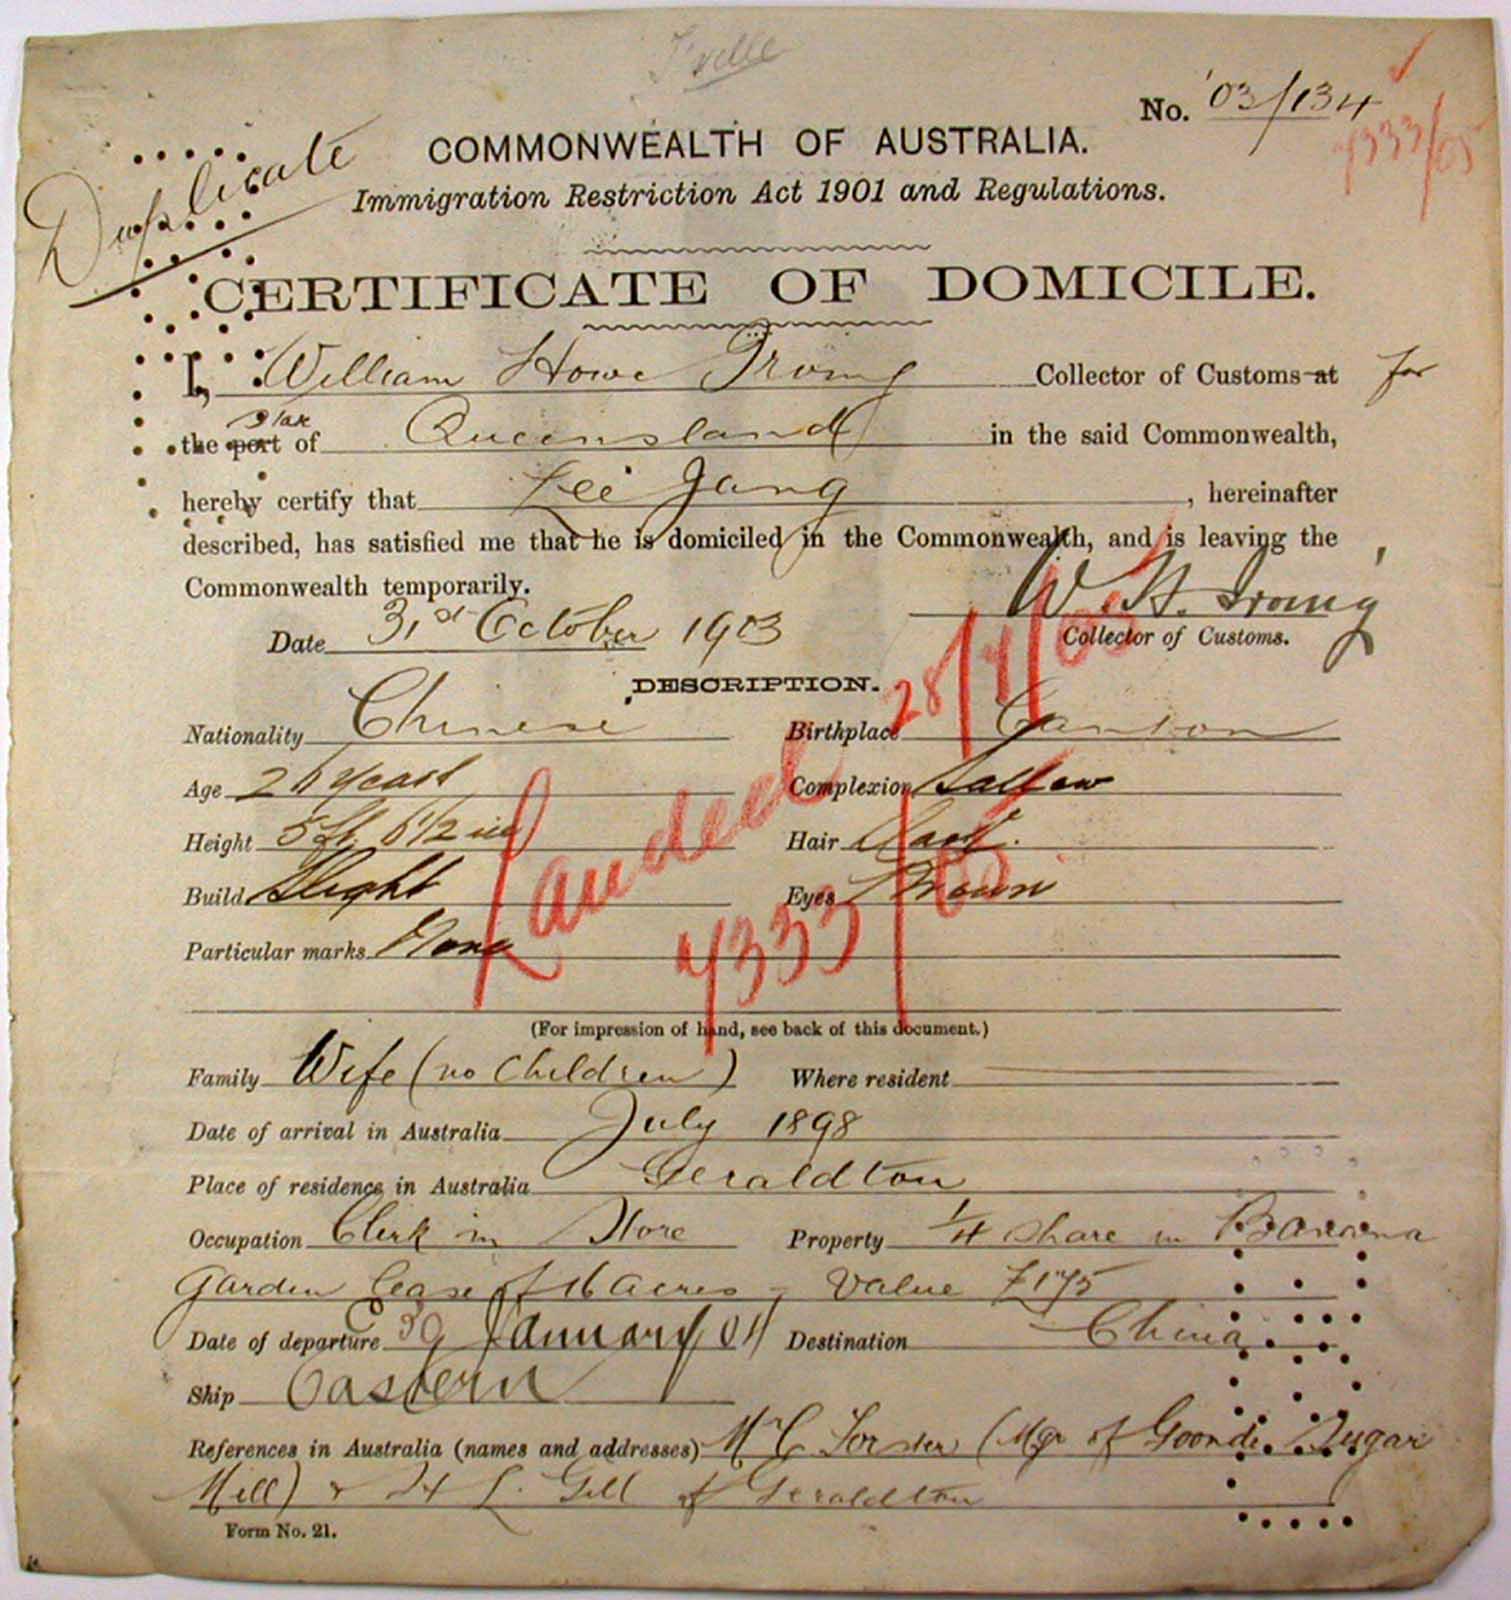 No. '03/134
4333/05
COMMONWEALTH OF AUSTRALIA.
Duplicate
Immigration Restriction Act 1901 and Regulations.
CERTIFICATE OF DOMICILE.
I, William Howe Irving Collector of Customs at for
the port of State Queensland in the said Commonwealth,
hereby certify that Lee Gang, hereinafter
described, has satisfied me that he is domiciled in the Commonwealth, and is leaving the
Commonwealth temporarily.
W. H. Irving
Date 31st October 1903 Collector of Customs.
DESCRIPTION.
Nationality Chinese Birthplace Canton
Age 26 years Complexion Sallow
Height 5 ft 6 1/2 in Hair Dark.
Build Slight Eyes Brown
Particular marks None
Landed 28/4/05
4333/05
(For impression of hand, see back of this document.)
Family Wife (no children) Where resident
Date of arrival in Australia July 1898
Place of residence in Australia Geraldton
Occupation Clerk in Store Property 1/4 share in Banana
Garden lease of 16 acres - Value £175
Date of departure January 04 Destination China
Ship Eastern
References in Australia (names and addresses) Mr C Forster (Mgr of Goondi Sugar
Mill) & H L. Gill of Geraldton
Form No. 21.